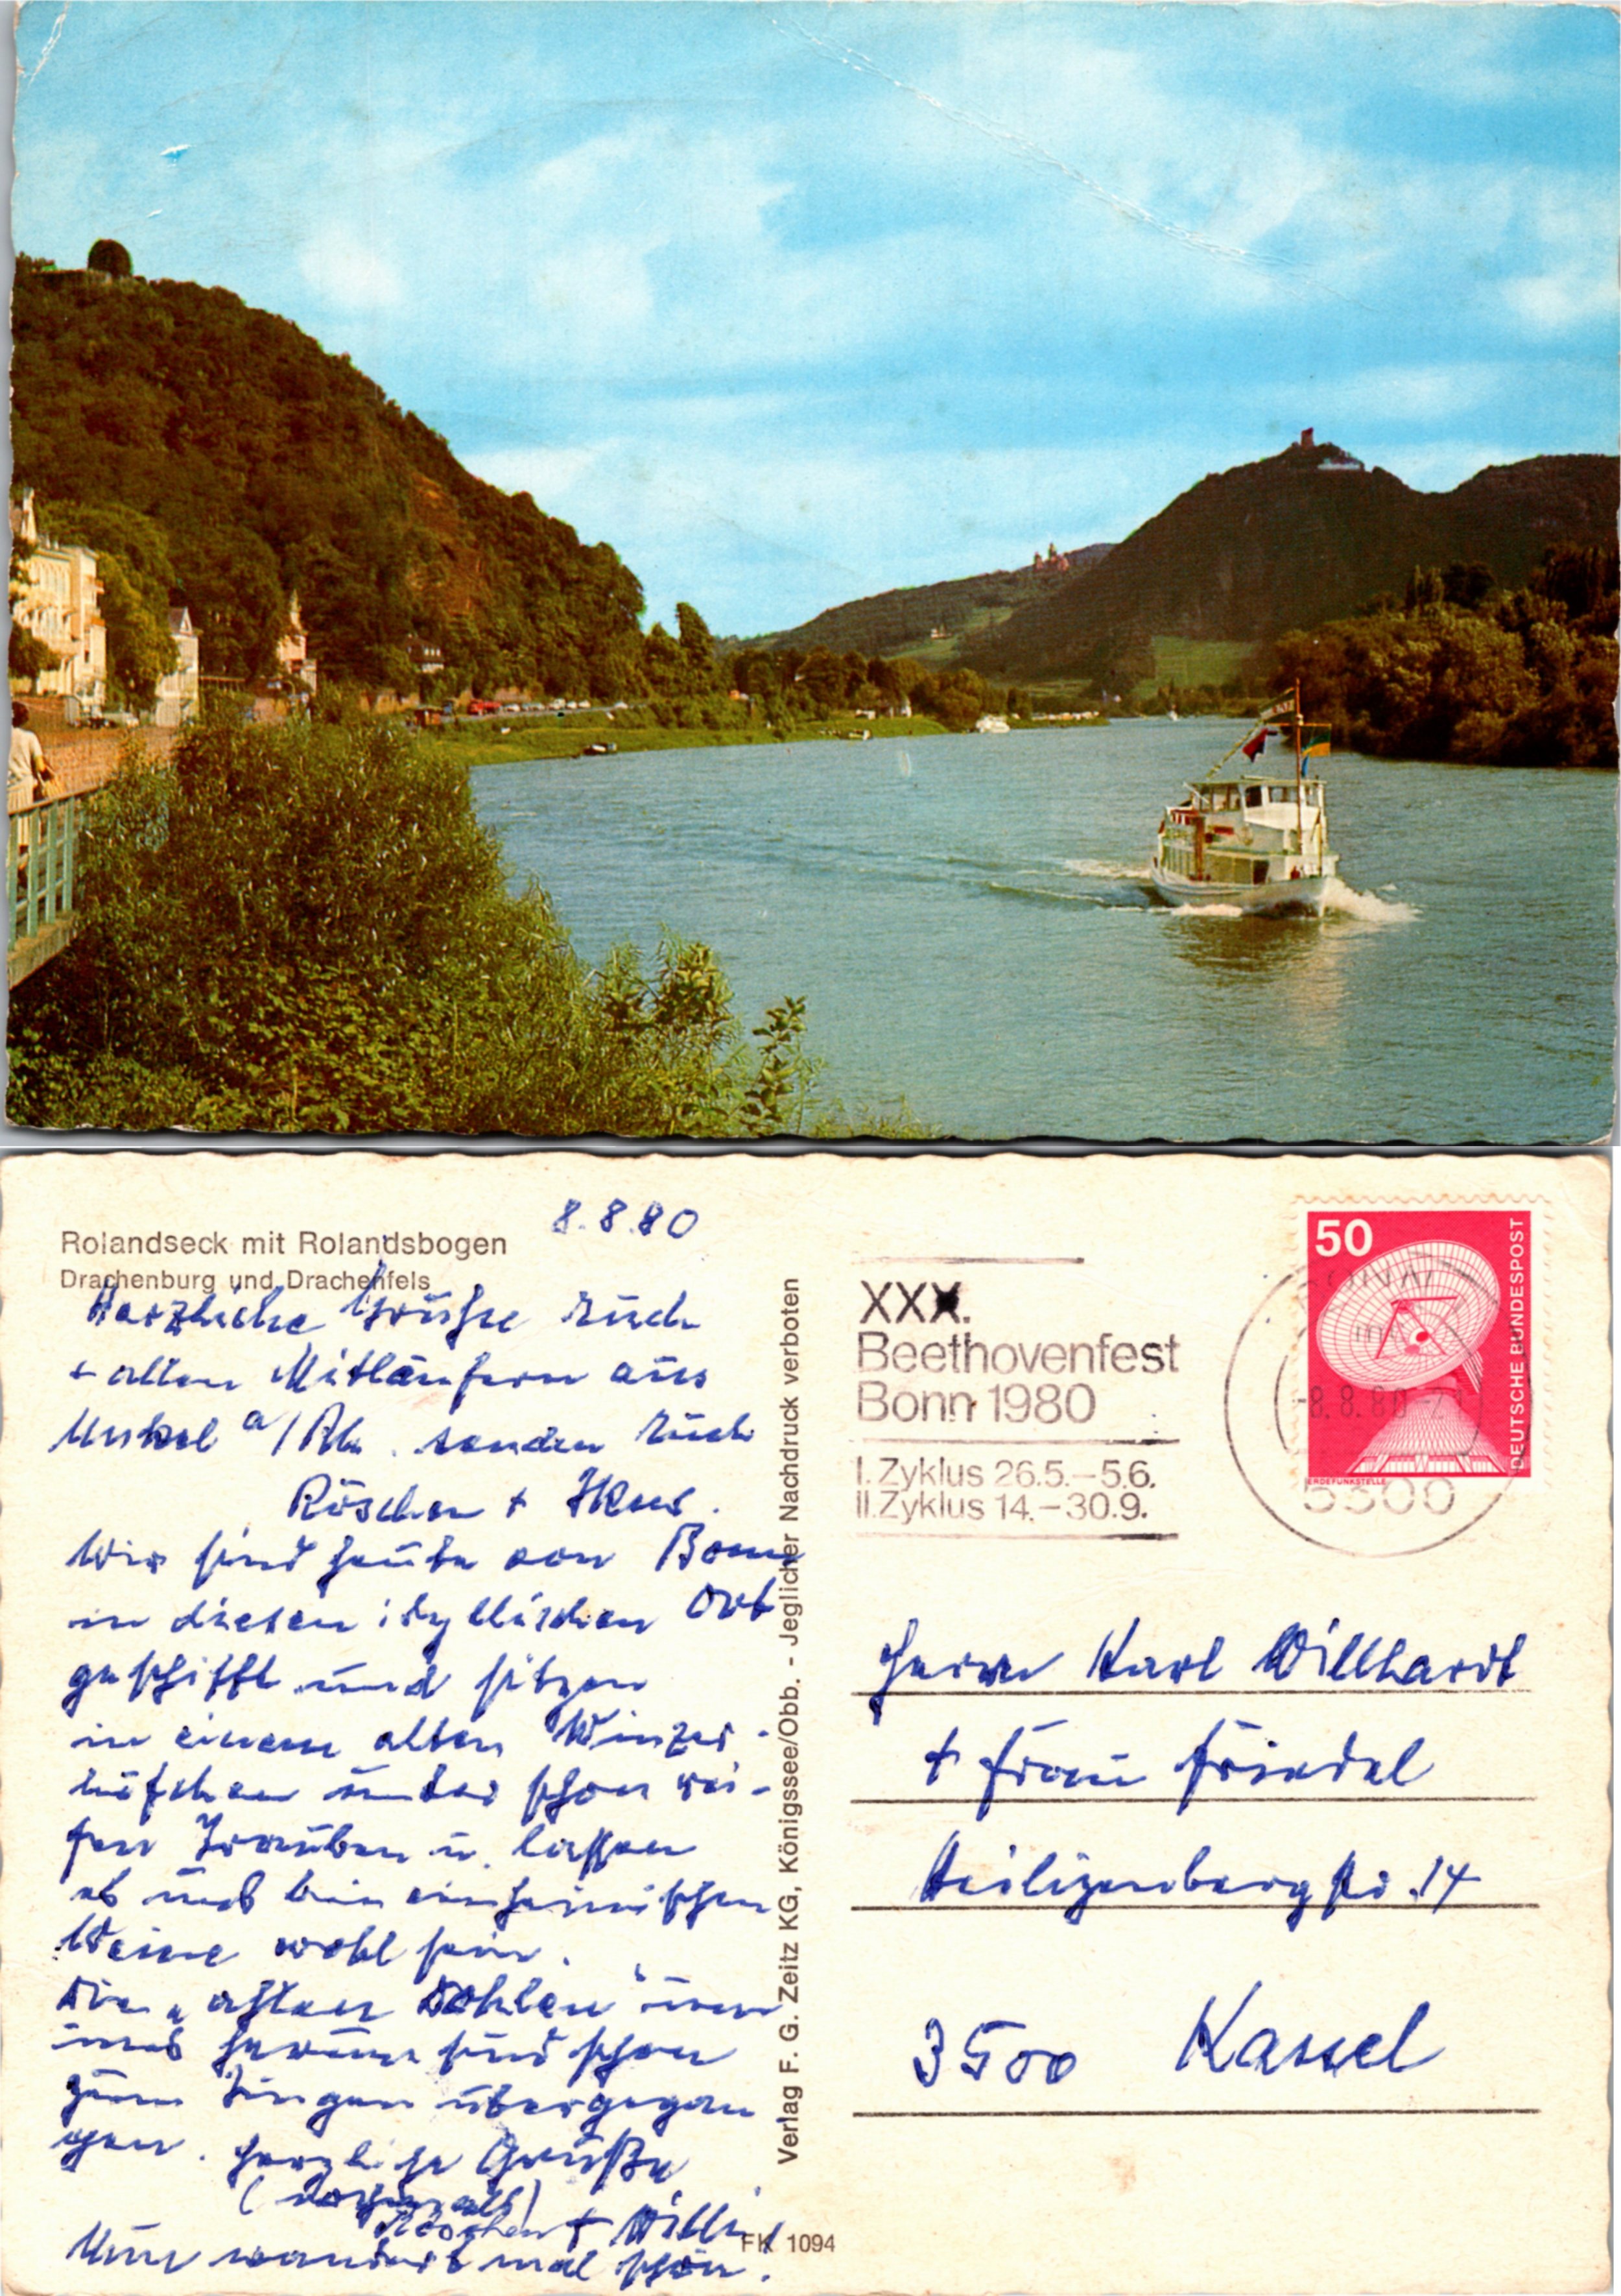 Rolandseck mit Rolandsbogen
Drachenburg und Drachenfels
8.8.80
Herzliche Grüße Euch
+ allen Mitläufern aus
Unkel a/Rh. senden Euch
Röschen +
Wir sind heute von Bonn
in diesen idyllischen Ort
geschifft und sitzen
in einem alten Winzer-
höfchen unter schon rei-
fen Trauben u. lassen
es uns bei einheimischen
Weine wohl sein.
Die "alten
uns herum sind schon
zum Singen übergegan
gen. Herzliche Grüße
(nochmals)
Röschen + Willi
Nun wandert mal schön.
Verlag F. G. Zeitz KG, Königssee/Obb. - Jeglicher Nachdruck verboten
FK 1094
XXX.
Beethovenfest
Bonn 1980
I. Zyklus 26.5.–5.6.
II. Zyklus 14.–30.9.
50
DEUTSCHE BUNDESPOST
ERDEFUNKSTELLE
-8.8.80-21
5300
Herrn Karl Willhardt
+ Frau Friedel
Heiligenbergstr. 14
3500 Kassel